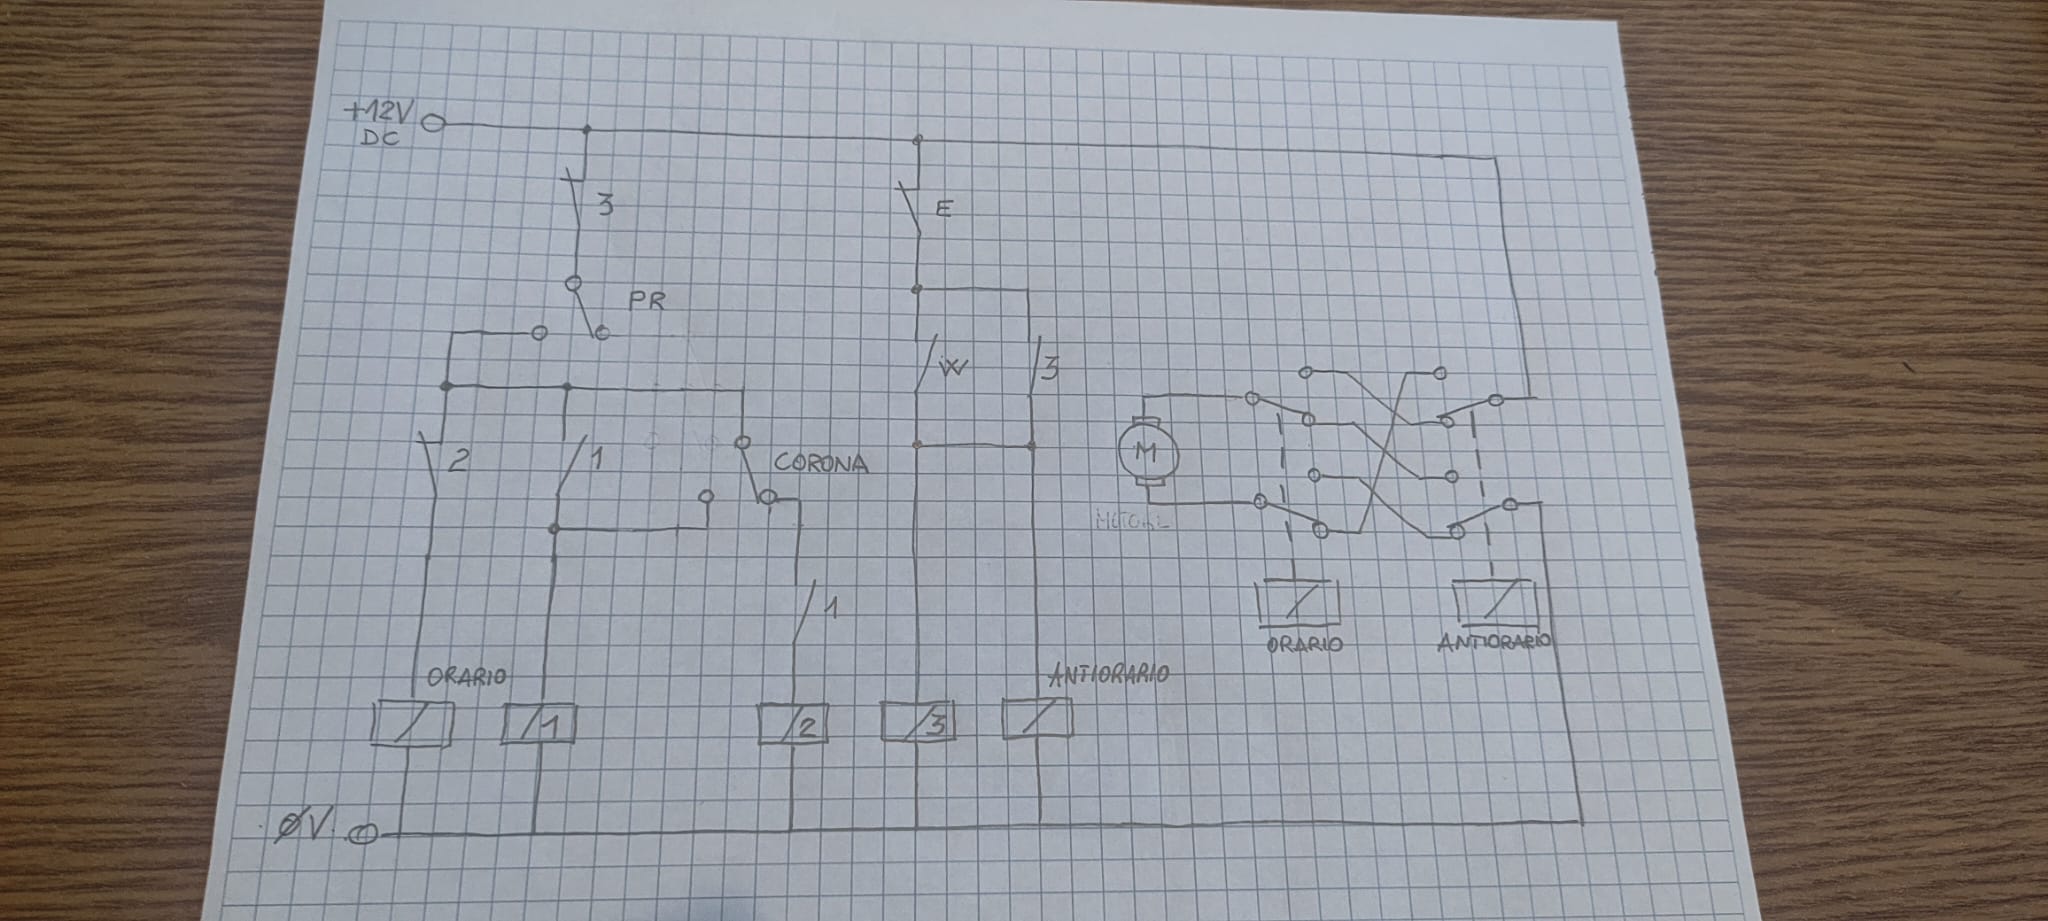 +12V
DC
3
E
PR
W
3
2
1
CORONA
M
MOTORE
1
ORARIO
ANTIORARIO
ORARIO
ANTIORARIO
1
2
3
ØV